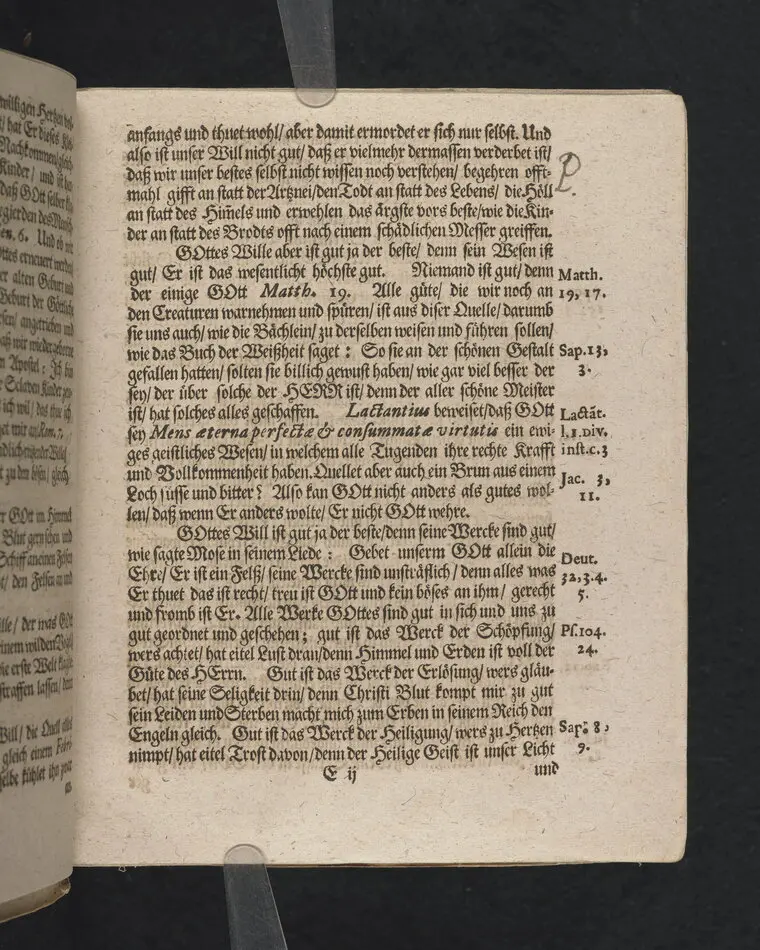 anfangs und thuet wohl/ aber damit ermordet er sich nur selbst. Und
also ist unser Will nicht gut/ daß er vielmehr dermassen verderbet ist/
daß wir unser bestes selbst nicht wissen noch verstehen/ begehren offt-
mahl gifft an statt der Artznei/ den Todt an statt des Lebens/ die Höll
an statt des Him̃els und erwehlen das ärgste vors beste/ wie die Kin-
der an statt des Brodts offt nach einem schädlichen Messer greiffen.
GOttes Wille aber ist gut ja der beste/ denn sein Wesen ist
gut/ Er ist das wesentlicht höchste gut. Niemand ist gut/ denn
der einige GOtt Matth. 19. Alle güte/ die wir noch an
den Creaturen warnehmen und spüren/ ist aus dieser Quelle/ darumb
sie uns auch/ wie die Bächlein/ zu derselben weisen und führen sollen/
wie das Buch der Weißheit saget: So sie an der schönen Gestalt
gefallen hatten/ solten sie billich gewust haben/ wie gar viel besser der
sey/ der über solche der HERR ist/ denn der aller schöne Meister
ist/ hat solches alles geschaffen. Lactantius beweiset/ daß GOtt
sey Mens æterna perfectæ & consummatæ virtutis ein ewi-
ges geistliches Wesen/ in welchem alle Tugenden ihre rechte Krafft
und Vollkommenheit haben. Quellet aber auch ein Brun aus einem
Loch süsse und bitter? Also kan GOtt nicht anders als gutes wol-
len/ daß wenn Er anders wolte/ Er nicht GOtt wehre.
GOttes Will ist gut ja der beste/ denn seine Wercke sind gut/
wie sagte Mose in seinem Liede: Gebet unserm GOtt allein die
Ehre/ Er ist ein Felß/ seine Wercke sind unsträflich/ denn alles was
Er thuet das ist recht/ treu ist GOtt und kein böses an ihm/ gerecht
und fromb ist Er. Alle Werke GOttes sind gut in sich und uns zu
gut geordnet und geschehen; gut ist das Werck der Schöpfung/
wers achtet/ hat eitel Lust dran/ denn Himmel und Erden ist voll der
Güte des HErrn. Gut ist das Werck der Erlösung/ wers gläu-
bet/ hat seine Seligkeit drin/ denn Christi Blut kompt mir zu gut
sein Leiden und Sterben macht mich zum Erben in seinem Reich den
Engeln gleich. Gut ist das Werck der Heiligung/ wers zu Hertzen
nimpt/ hat eitel Trost davon/ denn der Heilige Geist ist unser Licht
E ij
und
Matth.
19, 17.
Sap. 13,
3.
Lactãt.
l. 1. Div.
inst. c. 3
Jac. 3,
11.
Deut.
32, 3. 4.
5.
Ps. 104.
24.
Sap. 8,
9.